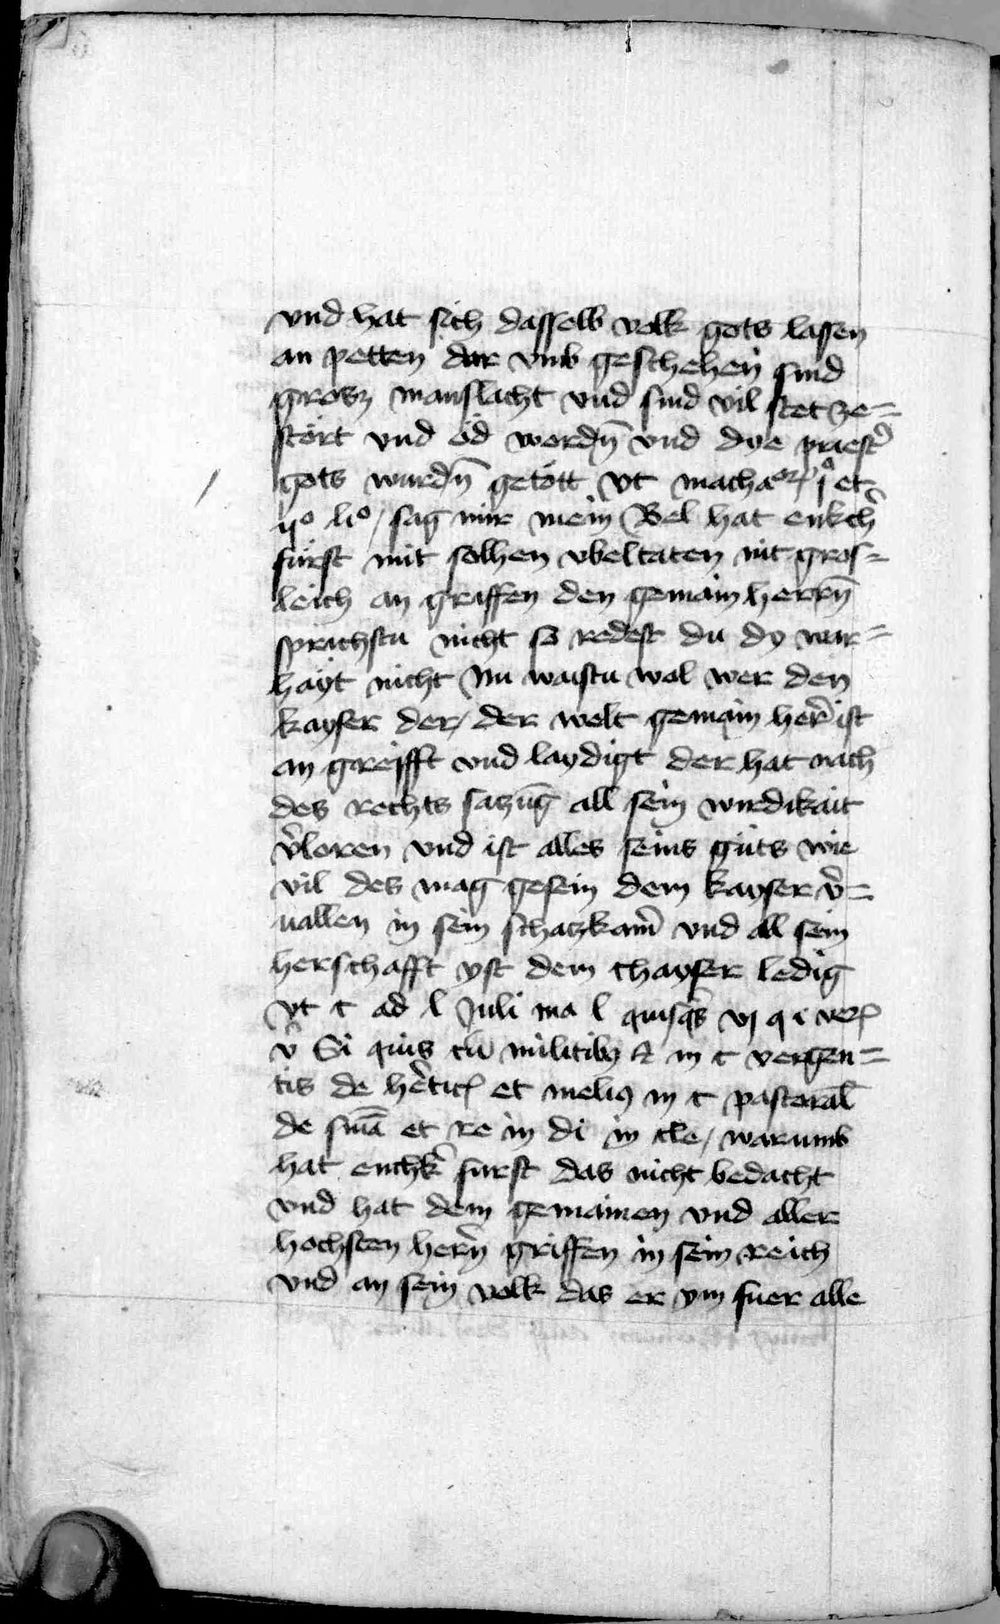 vnd hat sich dasselb volk gots lassen
an petten dar vmb geschehen sind
gross manslacht vnd sind vil stet ze=
stört vnd öd wordn̄ vnd dye priest̾
gots wurdn̄ getött vt macha et
ijo lio / sag mir mein Bel hat enkch̾
fürst mit solhen vbeltaten nit gros=
leich an griffen den gemain herrn̄
sprichstu nicht so redest du dy war=
hayt nicht Nu waistu wol wer den
kayser der / der welt gemain her̾ ist
an greifft vnd laydigt der hat nach
des rechts satzūg all sein wirdikait
v̾loren vnd ist alles seins güts wie
vil des mag gesein dem kayser v̾=
uallen in sein schatzkam̾ vnd all sein
herschafft yst dem chayser ledig
vt c ad l Juli ma l quisq̾s vj q i
v̾ Si quis cū militibꝫ & in c vergen=
tis de h̾etic et meliꝯ in c pastoral̄
de sniā et re in di in cle / warumb
hat enchk̾ fürst das nicht bedacht
vnd hat dem gemainen vnd aller
hochsten hern̄ griffen in sein reich
vnd an sein volk das er ym fuer alle